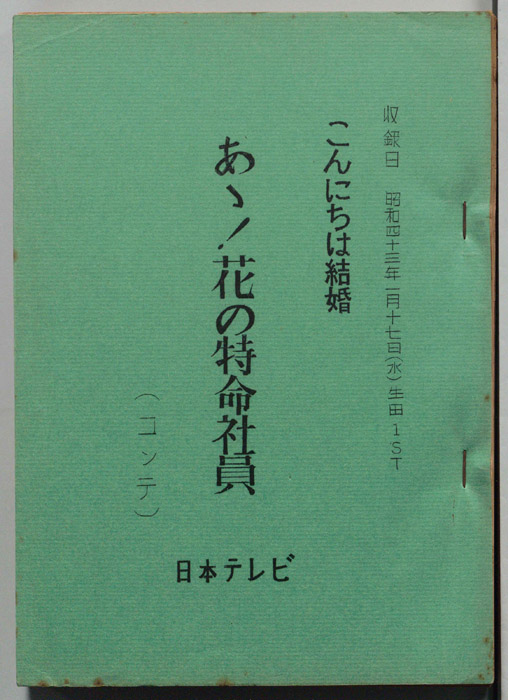 収録日 昭和四十三年一月十七日(水)生田1ST
こんにちは結婚
あゝ!花の特命社員
(コンテ)
日本テレビ